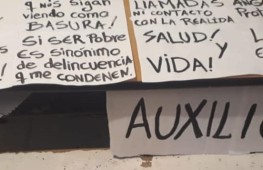 q nos sigan
viendo como
BASURA!
Si SER Pobre
Es sinónimo
de delincuencia
q me CONDENEN.
LLAMADAS
Ni CONTACTO
CON LA REALIDA
SALUD!
y
VIDA!
AUXILI